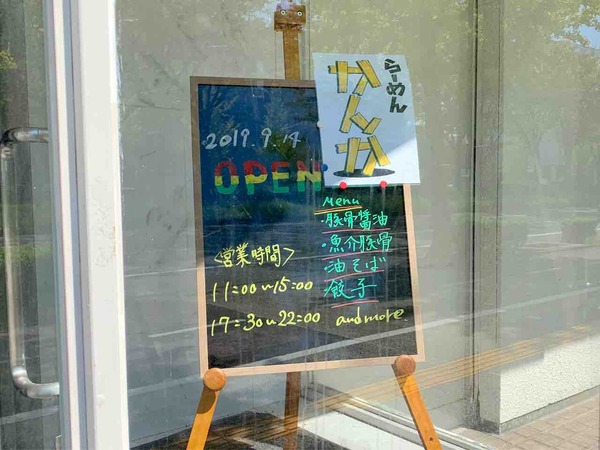 らーめん
かんか
2019.9.14
OPEN
Menu
・豚骨醤油
・魚介豚骨
・油そば
・餃子
and more
<営業時間>
11:00~15:00
17:30~22:00